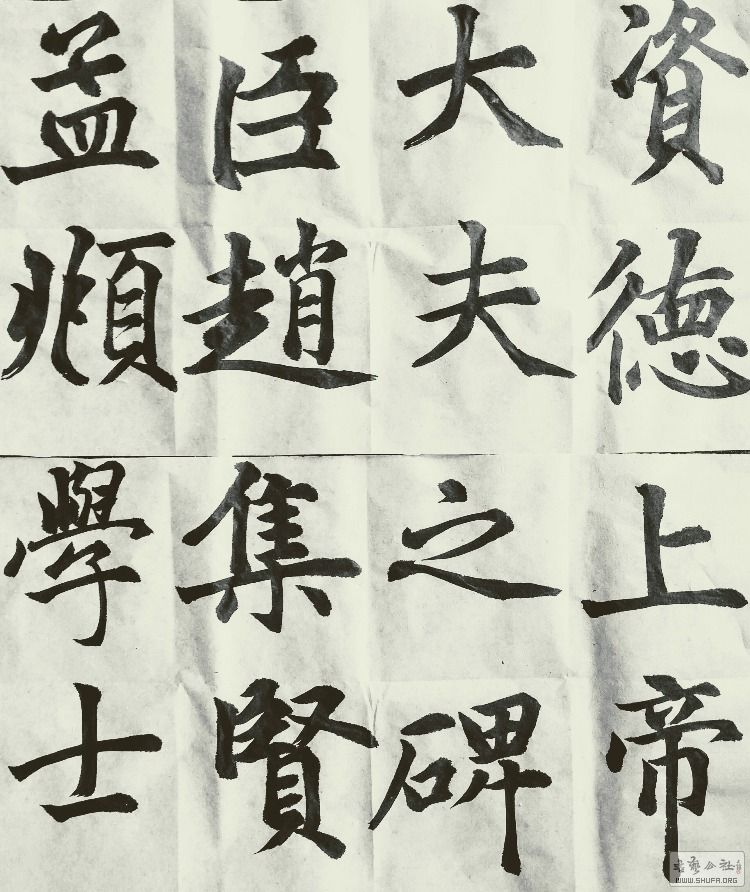 資德
大夫
臣趙
孟頫
上帝
之碑
集賢
學士
書藝公社
WWW.SHUFA.ORG